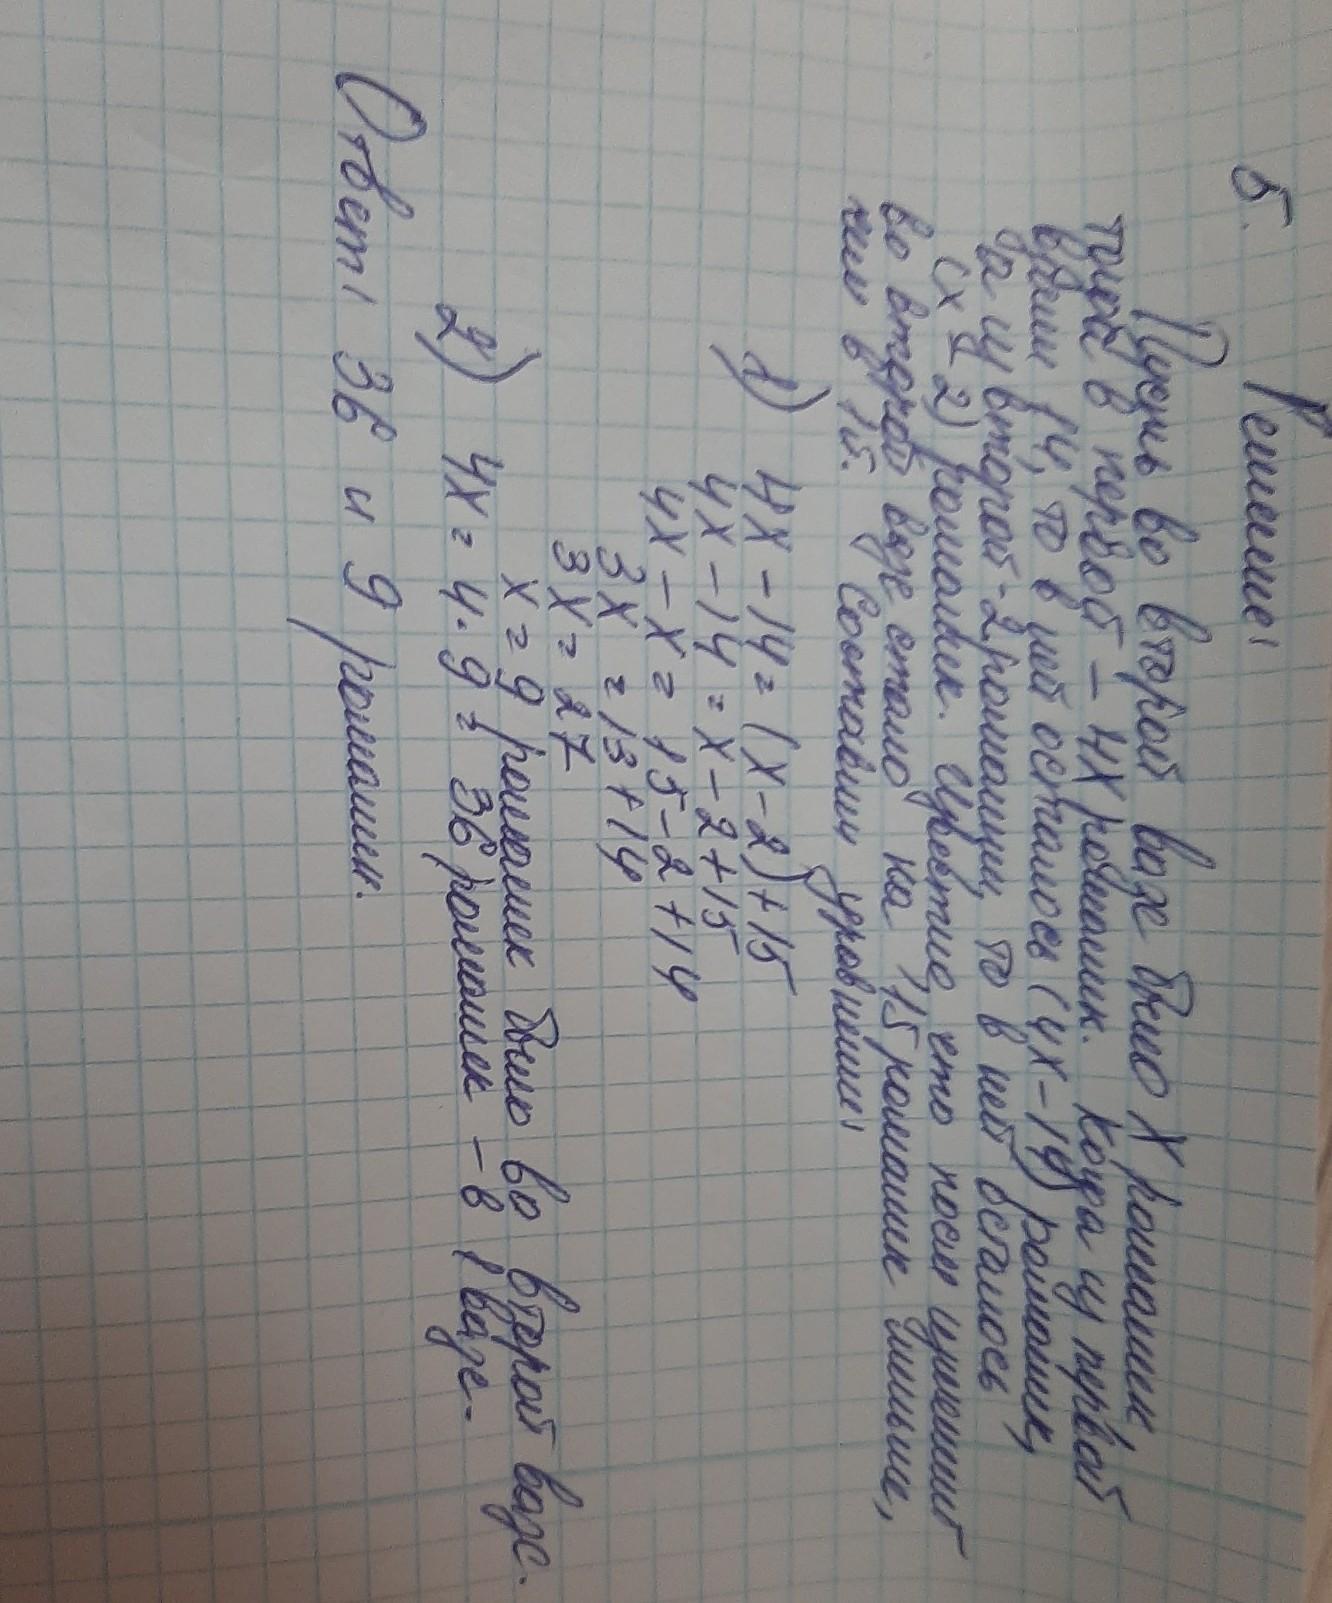 5. Решение:
Пусть во второй вазе было х ромашек
тогда в первой - 4х ромашек. Когда из первой
взяли 14, то в ней осталось (4х-14) ромашек,
а из второй - 2 ромашки, то в ней осталось
(х - 2) ромашек. Известно, что после
во второй вазе стало на 15 ромашек меньше,
чем в 1й. Составим уровнение:
1) 4х - 14 = (х - 2) + 15
4х - 14 = х - 2 + 15
4х - х = 15 - 2 + 14
3х = 13 + 14
3х = 27
х = 9 ромашек было во второй вазе.
2) 4х = 4 · 9 = 36 ромашек - в 1 вазе.
Ответ: 36 и 9 ромашек.